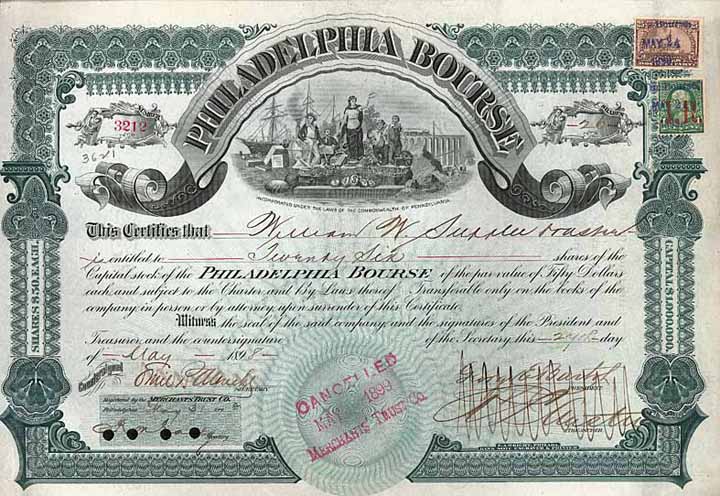 PHILADELPHIA BOURSE
MAY 24
I.R.
3212
3621
INCORPORATED UNDER THE LAWS OF THE COMMONWEALTH OF PENNSYLVANIA.
This Certifies that William W. Supplee
is entitled to Twenty Six shares of the
Capital stock of the PHILADELPHIA BOURSE of the par value of Fifty Dollars
each and subject to the Charter and By Laws thereof. Transferable only on the books of the
company in person or by attorney upon surrender of this Certificate.
Witness the seal of the said company, and the signatures of the President and
Treasurer and the countersignature of the Secretary this day
of May 1898
SHARES $50. EACH.
CAPITAL $1,000,000.
Countersigned
SECRETARY
PRESIDENT
TREASURER
Registered by the MERCHANTS TRUST CO.
Philadelphia
CANCELLED
MAY 1899
MERCHANTS TRUST CO.